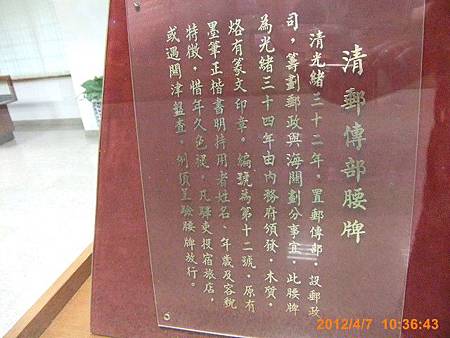 清郵傳部腰牌
清光緒三十二年，置郵傳部，設郵政
司，籌劃郵政與海關劃分事宜，此腰牌
為光緒三十四年由內務府頒發，木質，
烙有篆文印章，編號為第十二號，原有
墨筆正楷書明持用者姓名、年歲及容貌
特徵，惜年久色褪，凡驛吏投宿旅店，
或過關津盤查，例須呈驗腰牌放行。
2012/4/7 10:36:43